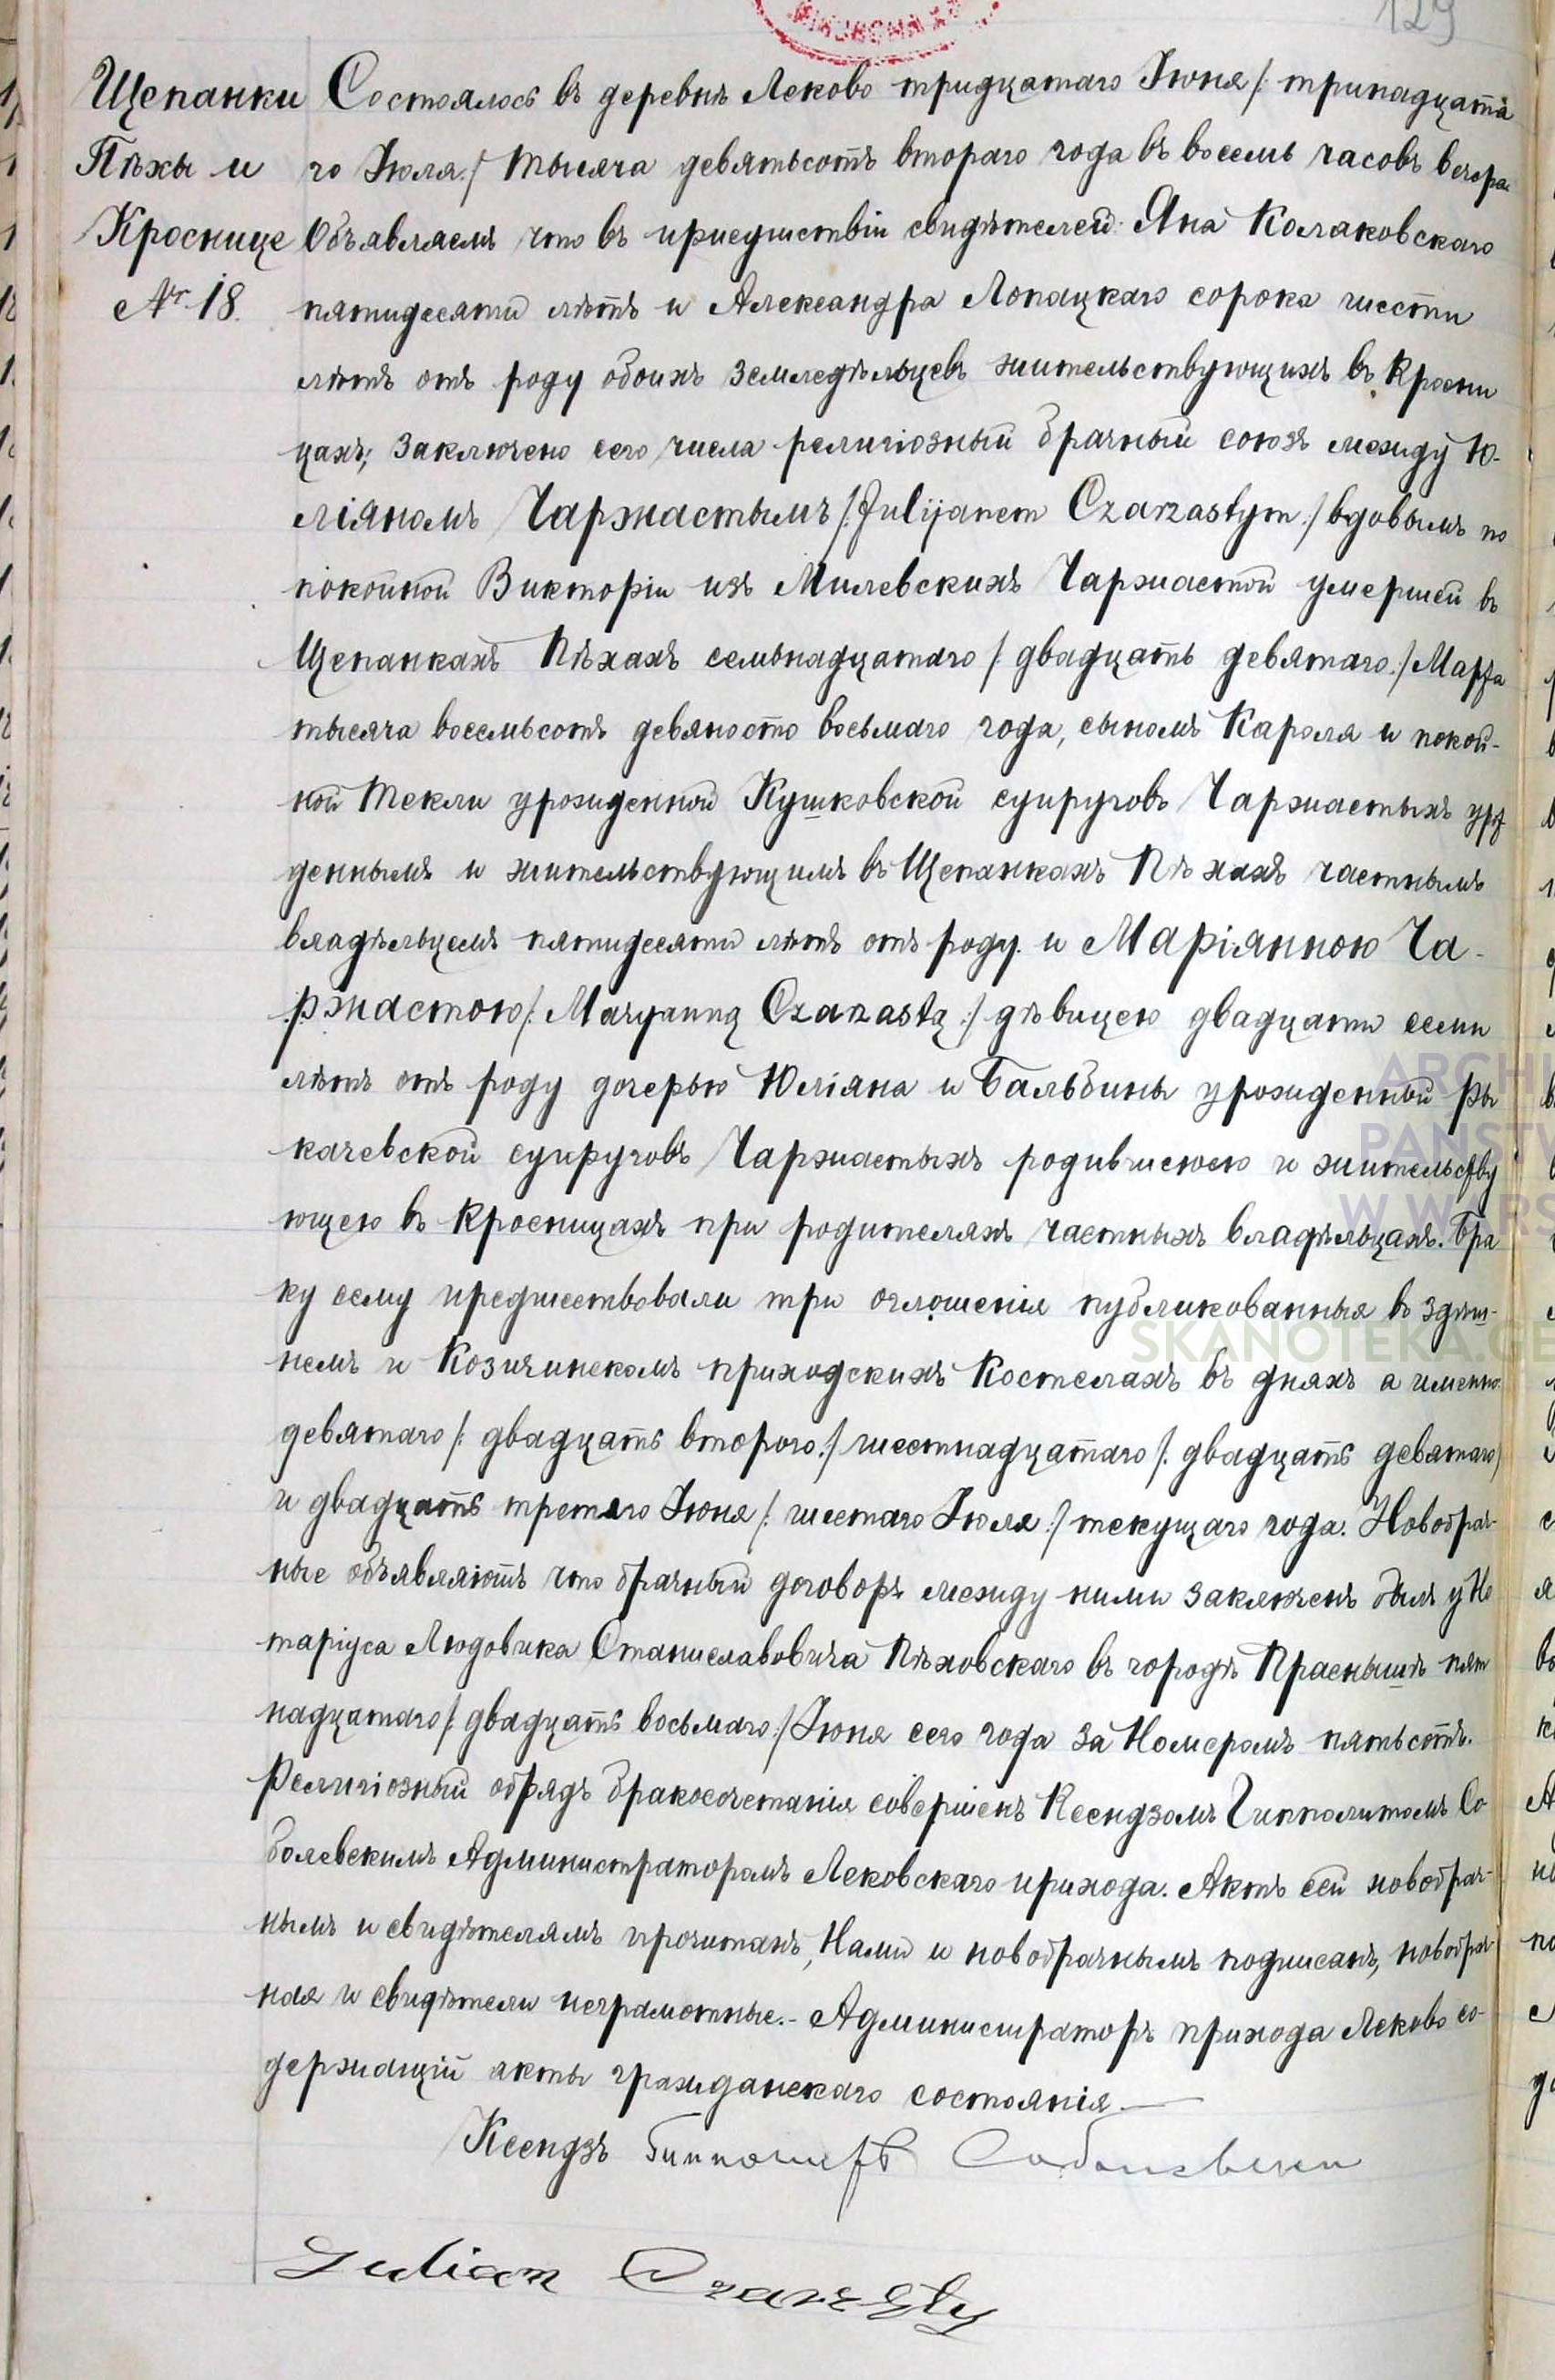 129
Щепанки Состоялось въ деревнѣ Леково тридцатаго Іюня /: тринадцата
Пѣхы и го Іюля :/ тысяча девятьсотъ втораго года въ восемь часовъ вечера
Кроснице Объявляемъ что въ присутствіи свидѣтелей: Яна Колаковскаго
№ 18. пятидесяти лѣтъ и Александра Лопацкаго сорока шести
лѣтъ отъ роду обоихъ земледѣльцевъ жительствующихъ въ Кросни
цахъ; заключено сего числа религіозный брачный союзъ между Ю-
ліяномъ Чаржастымъ /: Julijanem Czarzastym :/ вдовымъ по
покойной Викторіи изъ Милевскихъ Чаржастой умершей въ
Щепанкахъ Пѣхахъ семьнадцатаго /: двадцать девятаго :/ Марта
тысяча восемьсотъ девяносто восьмаго года, сыномъ Кароля и покой-
ной Текли урожденной Кушковской супруговъ Чаржастыхъ уро
деннымъ и жительствующимъ въ Щепанкахъ Пѣхахъ частнымъ
владѣльцемъ пятидесяти лѣтъ отъ роду. и Маріянною Ча-
ржастою /: Maryanną Czarzastą :/ дѣвицею двадцати семи
лѣтъ отъ роду дочерью Юліяна и Бальбины урожденный Ры
качевской супруговъ Чаржастыхъ родившеюсю и жительству
ющею въ Кросницахъ при родителяхъ частныхъ владѣльцахъ. Бра
ку сему предшествовали три оглошенія публикованныя въ здѣш-
немъ и Козичинскомъ приходскихъ Костелахъ въ дняхъ а именно:
девятаго /: двадцать второго :/ шестнадцатаго /: двадцать девятаго :/
и двадцать третяго Іюня /: шестаго Іюля :/ текущаго года. Новобрач-
ные объявляютъ что брачный договоръ между ними заключенъ былъ у Но
таріуса Людовика Станиславовича Пѣховскаго въ городѣ Праснышѣ пят
надцатаго /: двадцать восьмаго :/ Іюня сего года за Номеромъ пятьсотъ.
Религіозный обрядъ бракосочетанія совершенъ Ксендзомъ Гипполитомъ Со
болевскимъ Администраторомъ Лековскаго прихода. Актъ сей новобрач-
нымъ и свидѣтелямъ прочитанъ, Нами и новобрачнымъ подписанъ, новобрач-
ная и свидѣтели неграмотные.- Администраторъ прихода Леково со-
держащій акты гражданскаго состоянія.
Ксендзъ Гипполитъ Соболевски
Julian Czarzsty
ARCHI
PAŃSTW
W WARS
SKANOTEKA.GE